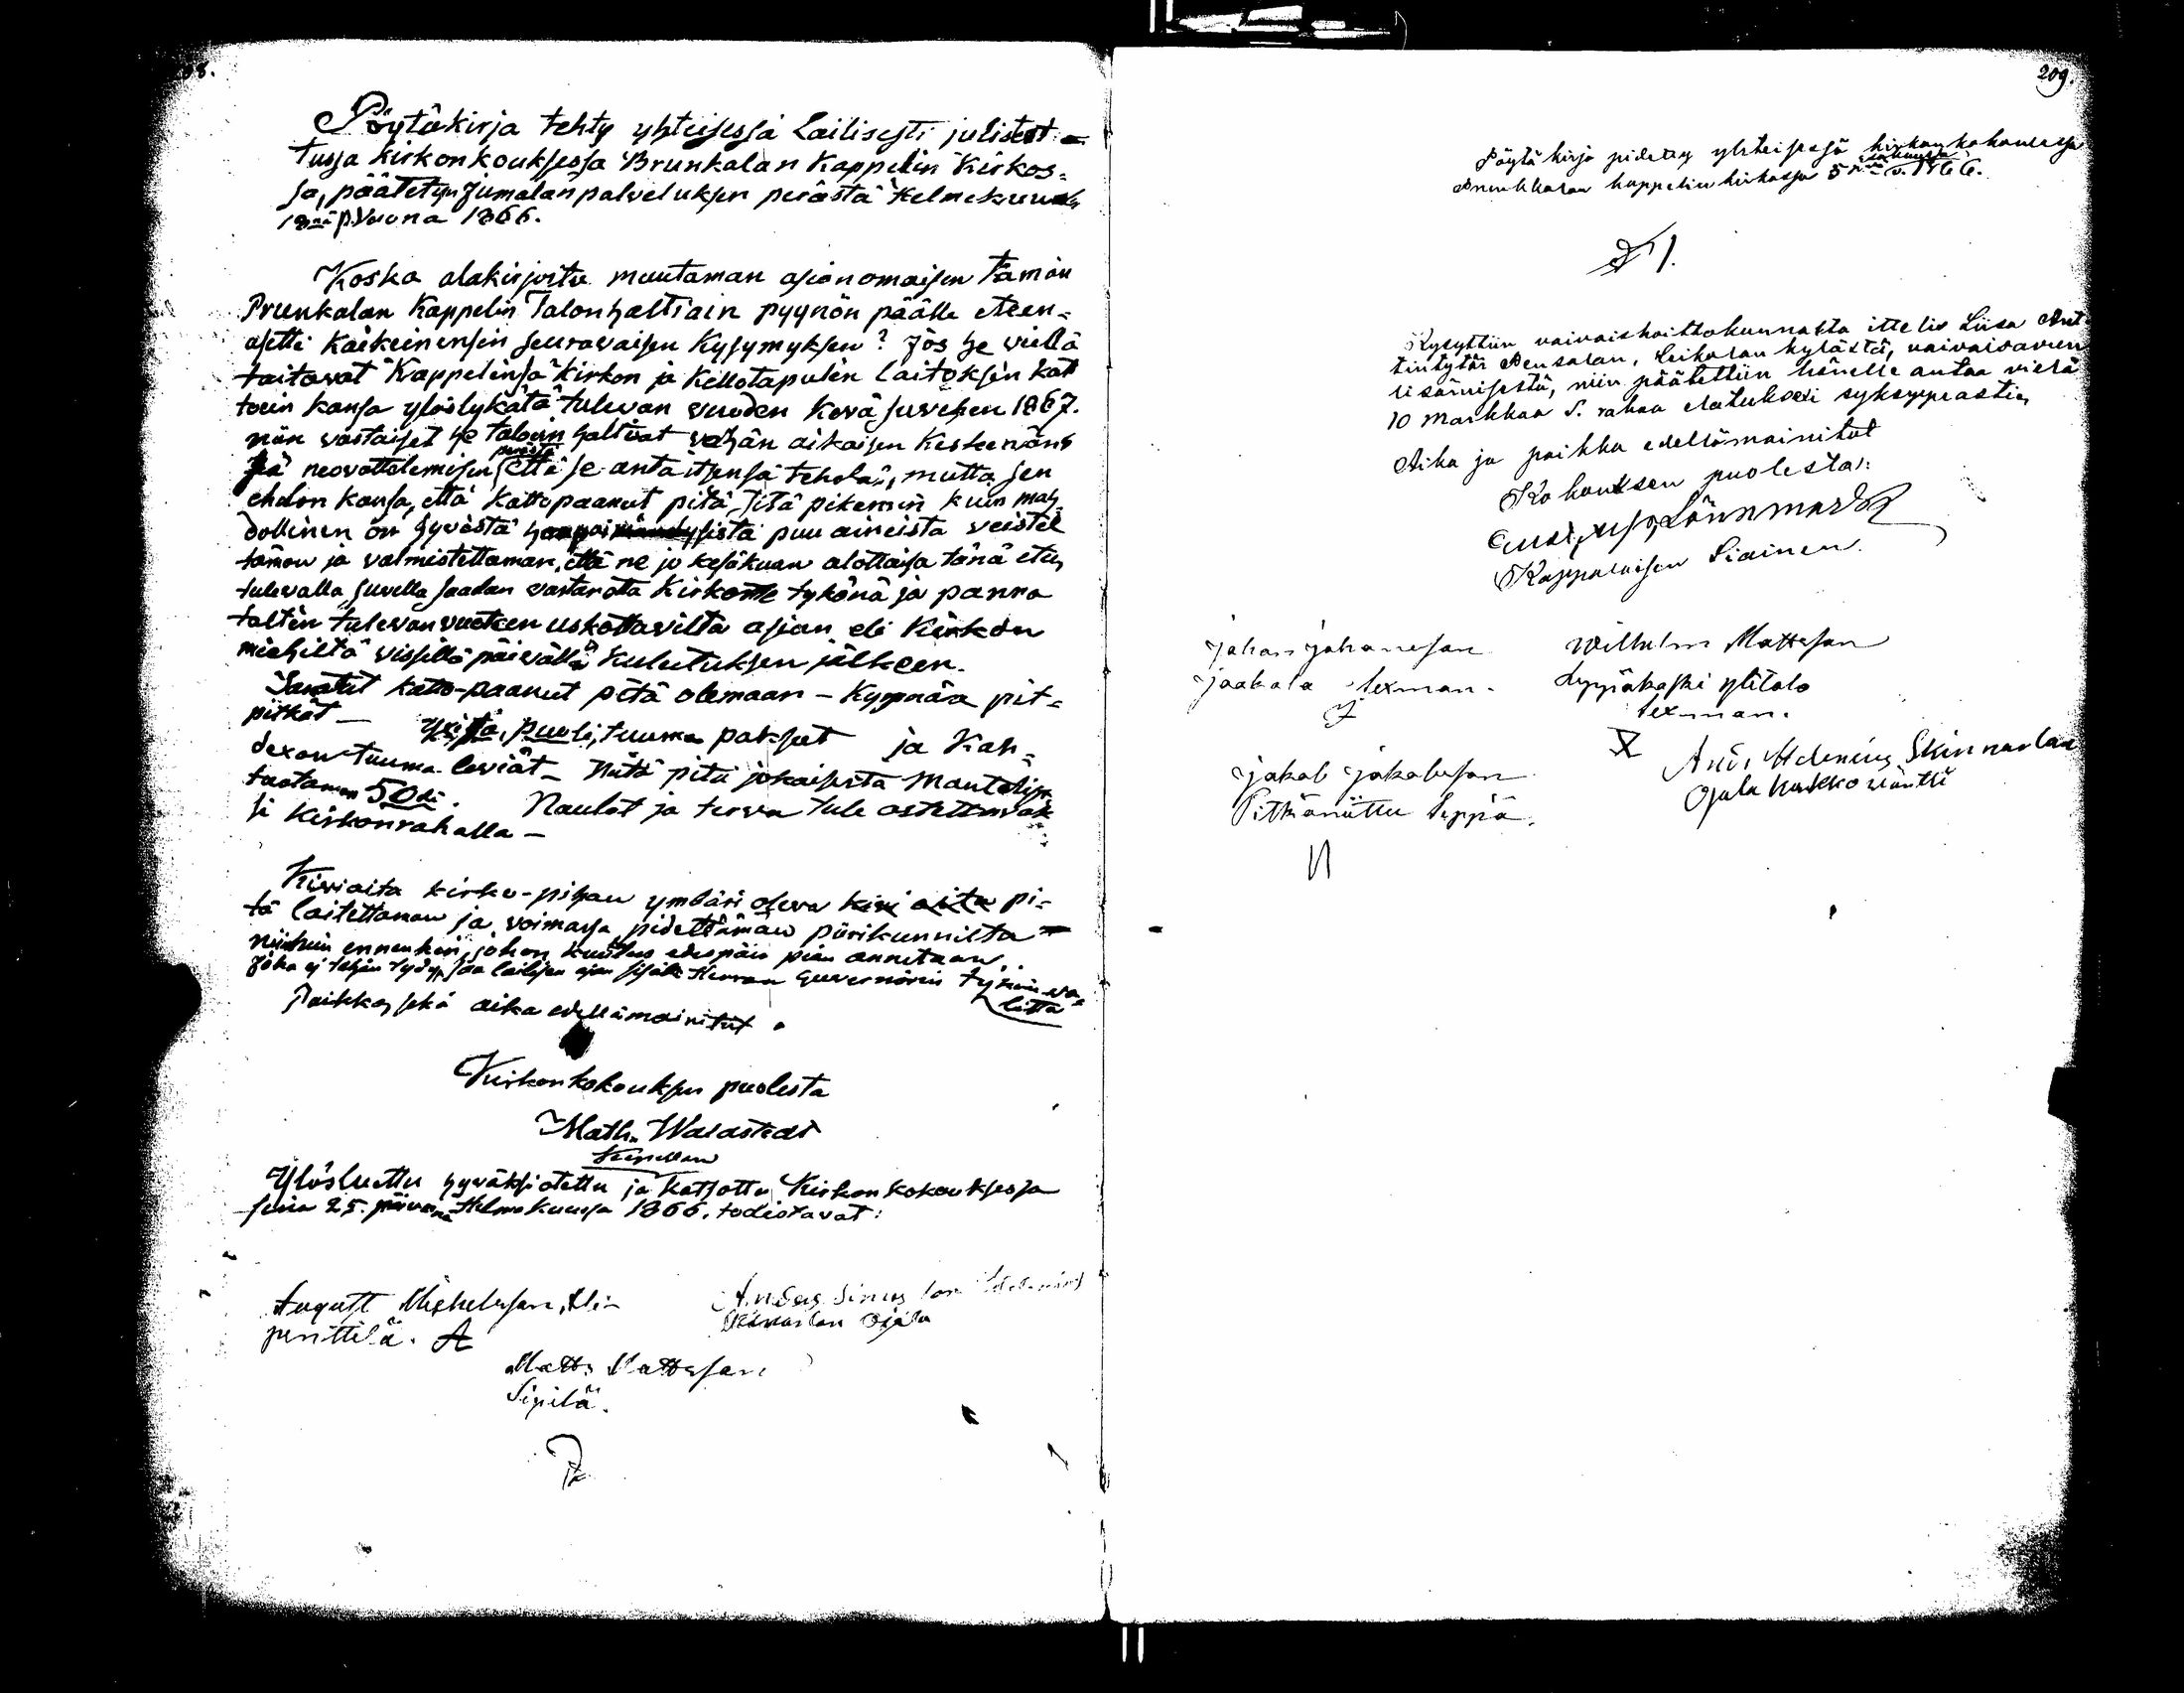 Pöytäkirja tehty yhteisessä Lailisesti julistet-
tussa Kirkonkouksessa Brunkalan Kappelin Kirkos-
sa, päätetyn Jumalan palveluksen perästä Helmekuun
18nä p. Vuona 1866.
Koska alakirjoitu muutaman asianomaisen tämän
Prunkalan Kappelin Talonhaltiain pyynön päälle eteen-
asetti Kaikeinensin seuravaisen Kysymyksen? Jos he vielä
taitavat Kappelinsa Kirkon ja Kellotapulin laitoksen kat
toein kansa ylöslykätä tulevan vuoden Kevä suvehen 1867.
niin vastaiset he taloin haltiat vähän aikaisen Keskenäns
sä neovottelemisen perästä että se anta itsensä tehdä, mutta sen
ehdon kansa, että Kattopaanut pitä sitä pikemin kuin mah-
dollinen on hyvästä puu aineista veistel
tämän ja valmistettaman, että ne jo kesäkuun alottaisa tänä etu
tulevalla suvella saadan vastanotta Kirkon tykönä ja panna
taltin tulevan vuoteen uskottavilta asian eli Kirkon
miehiltä vissillä päivällä Kulutuksen jälkeen.
Sanatut katto-paanut pitä olemaan - Kyynärä pit-
pitkät - yxi ja puoli, tuuma paksut ja Kah-
dexan tuuma leviät - Niitä pitä jokaisesta Mantalista
tuotaman 50di. Naulat ja terva tule ostettavak
si Kirkonrahalla -
Kiviaita kirko-pihan ymbäri oleva kivi aita pi-
tä laitettaman ja voimassa pidettämän piirikunnilta
niinkuin ennenkin, johon kuulutus edespäin pian annetaan.
Joka ej tähän tydy, saa lailisen ajan sisälä Herran Guvernörin tykön va-
litta
Paikka sekä aika edellämainitut.
Kirkonkokouksen puolesta
Math. Walastedt
Kapellan
Ylösluettu hyväksiotettu ja katsottu Kirkonkokouksessa
sinä 25. päivänä Helmekuussa 1866. todistavat:
August Michelsson, Ali-
penttilä. A
Anders
Ojala
Matts Mattsson
Sipilä.
209.
Pöytäkirja pidetty yhteisesä kirkonkokouksessa
Prunkkalan kappelin kirkossa 5nä v. 1866.
§ 1.
Kysyttiin vaivaishoittokunnasta itteliv Liisa Ant
tintytär Leikolan kylästä, vaivaisavun
lisämisestä, niin päätettiin hänelle antaa vielä
10 Markkaa S. rahaa elatukseksi syksypuastin
Aika ja paikka edellämainitut
Kokouksen puolesta:
Lönnmark
Kappalaisen Siainen.
Johan Johanesson
Jaakola Sexman.
Wilhelm Mattsson
Lyyräkoski ylitalo
Sexman.
Jakob Jakobsson
Pitkäniittu Seppä.
And. Helenius Skinnarlan
Ojala